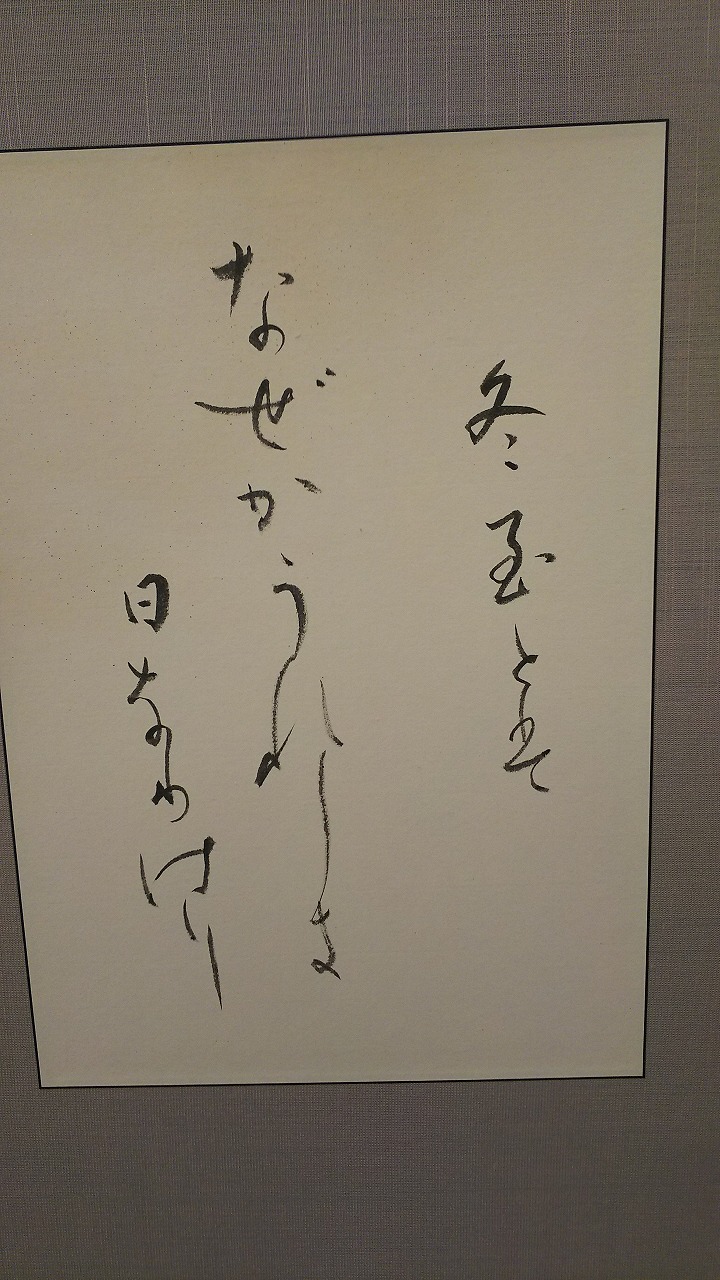 冬至とて
なぜかうれしき
日なりけり